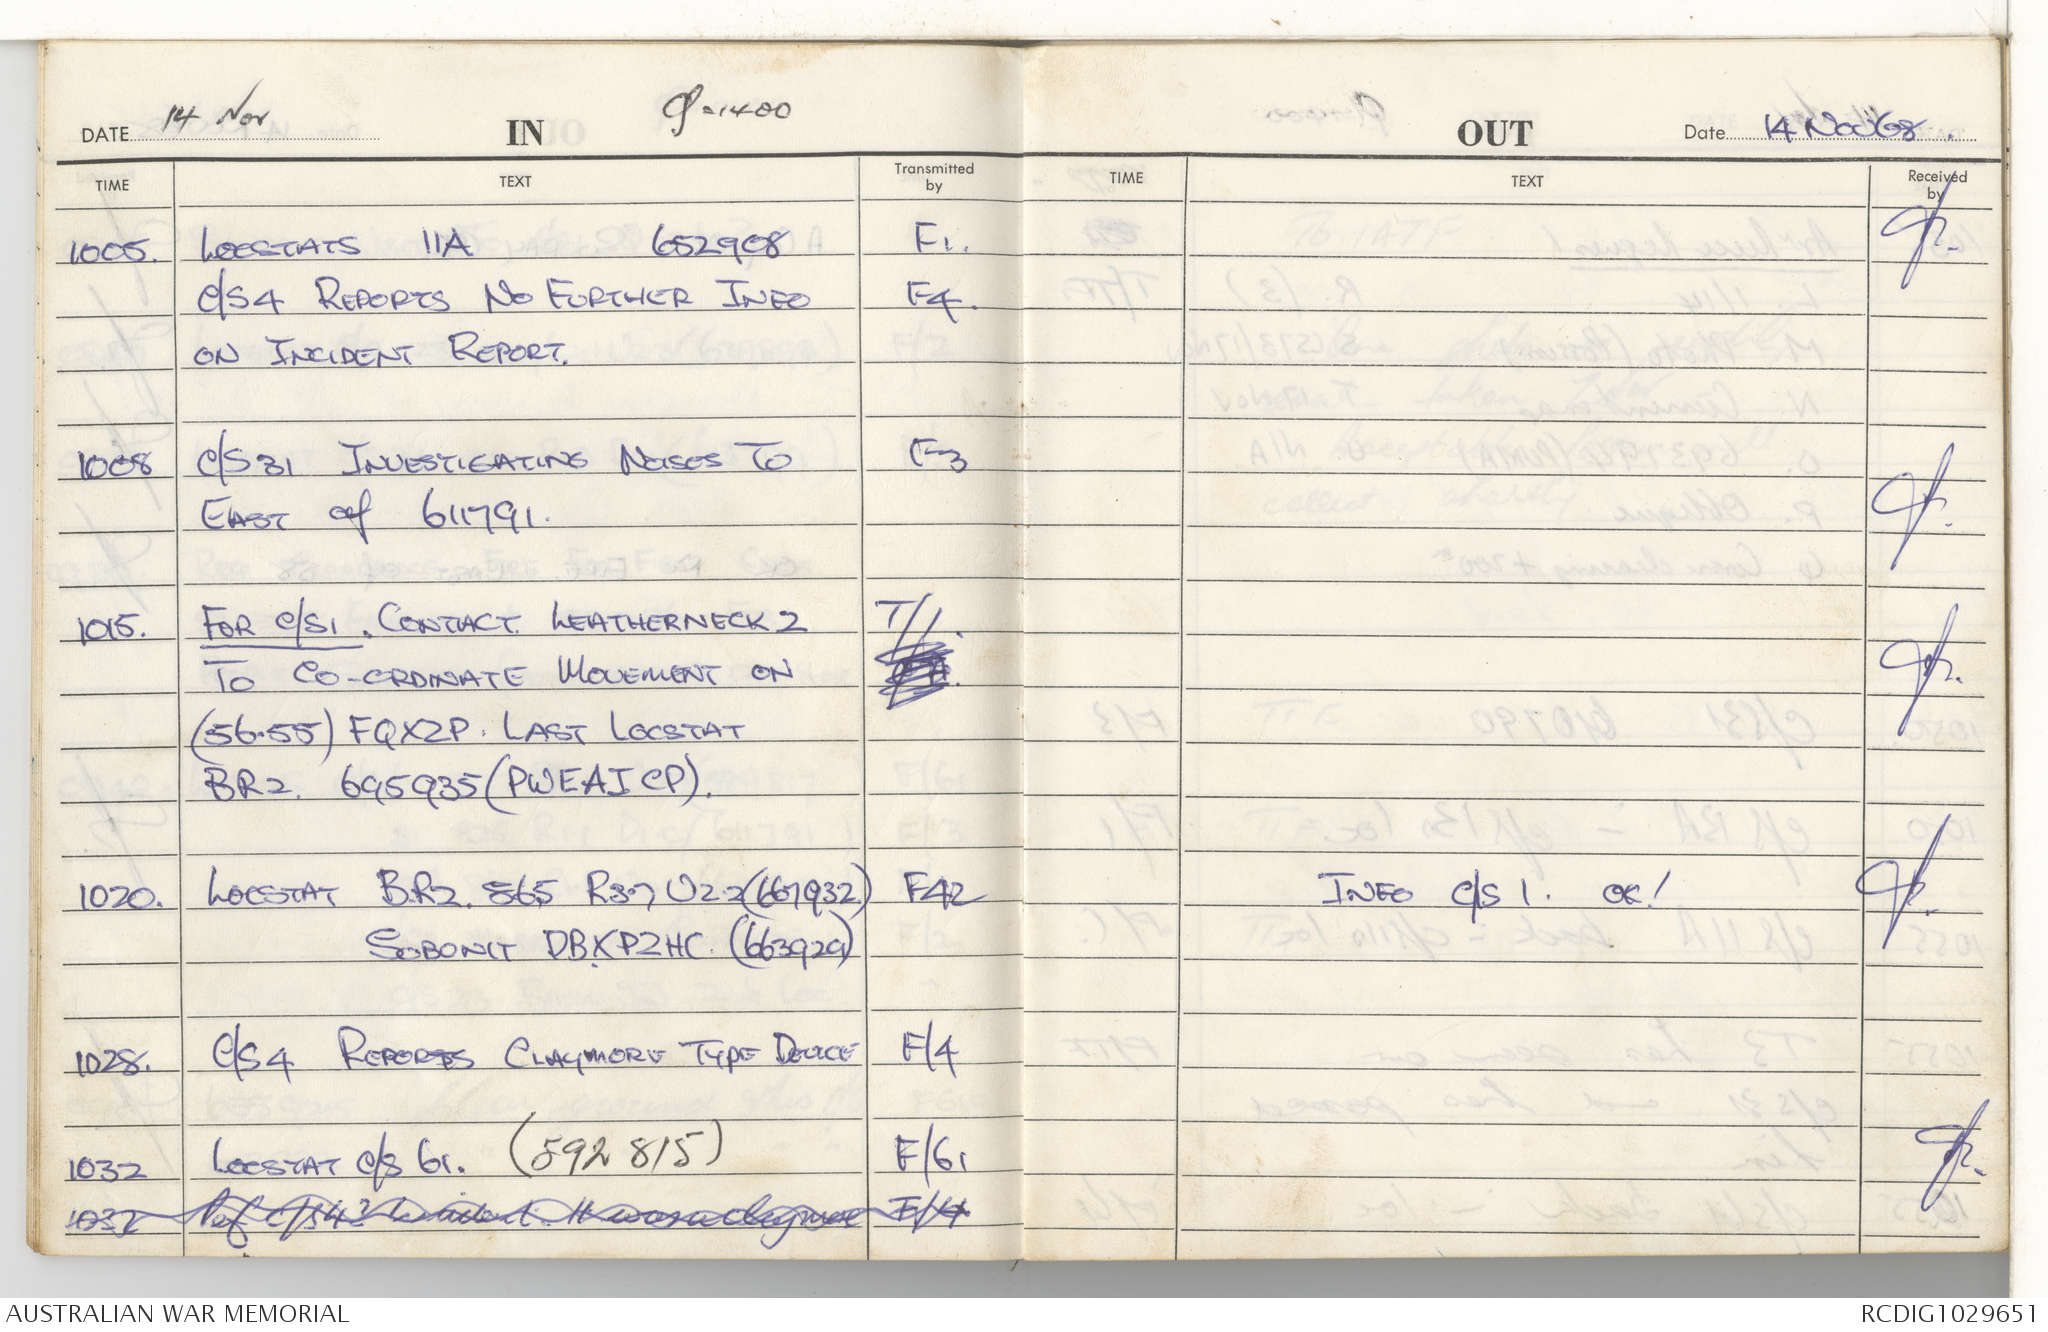 DATE 14 Nov IN =1400
TIME TEXT Transmitted by
1005. LOCSTATS 11A 652908 F1.
C/S4 REPORTS NO FURTHER INFO F4.
ON INCIDENT REPORT.
1008 C/S 31 INVESTIGATING NOISES TO F3
EAST of 611791.
1015. FOR C/S1. CONTACT LEATHERNECK 2 T/1.
TO CO-ORDINATE MOVEMENT ON
(56.55) FQXZP. LAST LOCSTAT
BR2. 695935 (PWEAICP).
1020. LOCSTAT BR2. 865 R37 U2.2 (667932) F42
SUBUNIT DBXPZHC. (663929)
1028. C/S4 REPORTS CLAYMORE TYPE DEVICE F/4
1032 LOCSTAT C/S 61. (592 815) F/61
1032 Ref C/S4 incident. It was a claymore F/4
OUT Date 14 Nov 68.
TIME TEXT Received by
INFO C/S 1. OK!
AUSTRALIAN WAR MEMORIAL RCDIG1029651